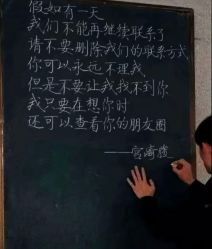 假如有一天
我们不能再继续联系了
请不要删除我们的联系方式
你可以永远不理我
但是不要让我找不到你
我只要在想你时
还可以查看你的朋友圈
——宫崎骏